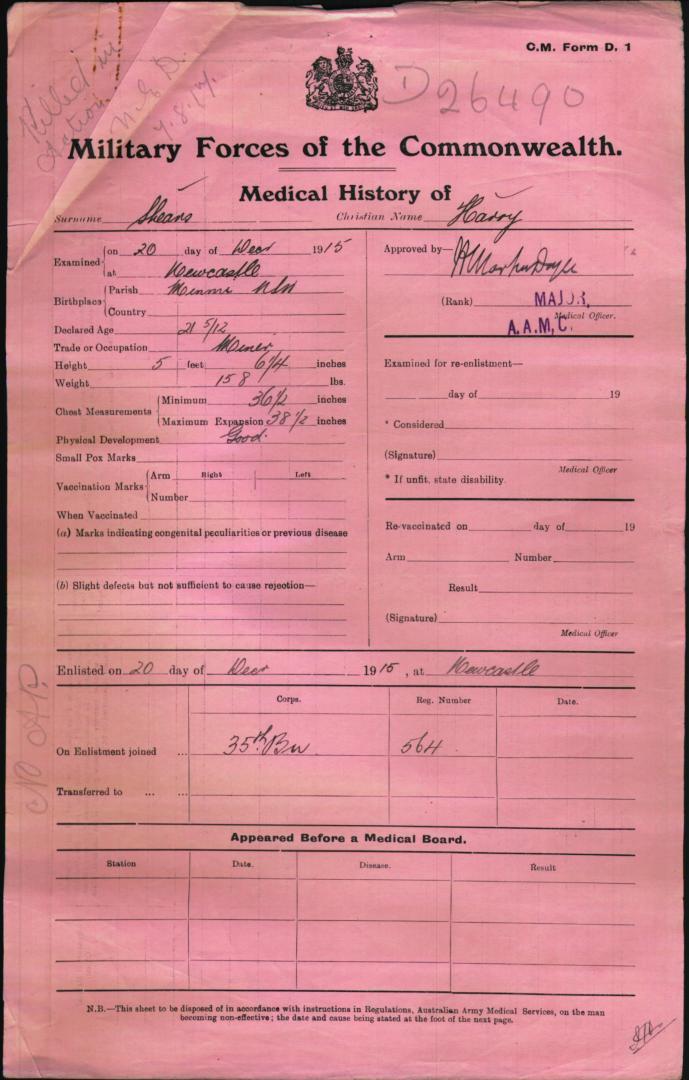 C.M. Form D. 1
Killed in
Action
7.8.17.
D 26490
Military Forces of the Commonwealth.
Medical History of
Surname Shears Christian Name Harry
Examined on 20 day of Decr 1915
at Newcastle
Birthplace Parish Minmi NSW
Country
Declared Age 21 5/12
Trade or Occupation Miner
Height 5 feet 6 1/4 inches
Weight 158 lbs.
Chest Measurements Minimum 36 1/2 inches
Maximum Expansion 38 1/2 inches
Physical Development Good.
Small Pox Marks
Vaccination Marks Arm Right Left
Number
When Vaccinated
(a) Marks indicating congenital peculiarities or previous disease
(b) Slight defects but not sufficient to cause rejection—
Approved by—
(Rank) MAJOR,
Medical Officer.
A.A.M.C.
Examined for re-enlistment—
day of 19
* Considered
(Signature)
Medical Officer
* If unfit, state disability.
Re-vaccinated on day of 19
Arm Number
Result
(Signature)
Medical Officer
Enlisted on 20 day of Decr 1915, at Newcastle
Corps. Reg. Number Date.
On Enlistment joined ... 35th Bn 564
Transferred to ... ...
Appeared Before a Medical Board.
Station Date. Disease. Result
N.B.—This sheet to be disposed of in accordance with instructions in Regulations, Australian Army Medical Services, on the man
becoming non-effective; the date and cause being stated at the foot of the next page.